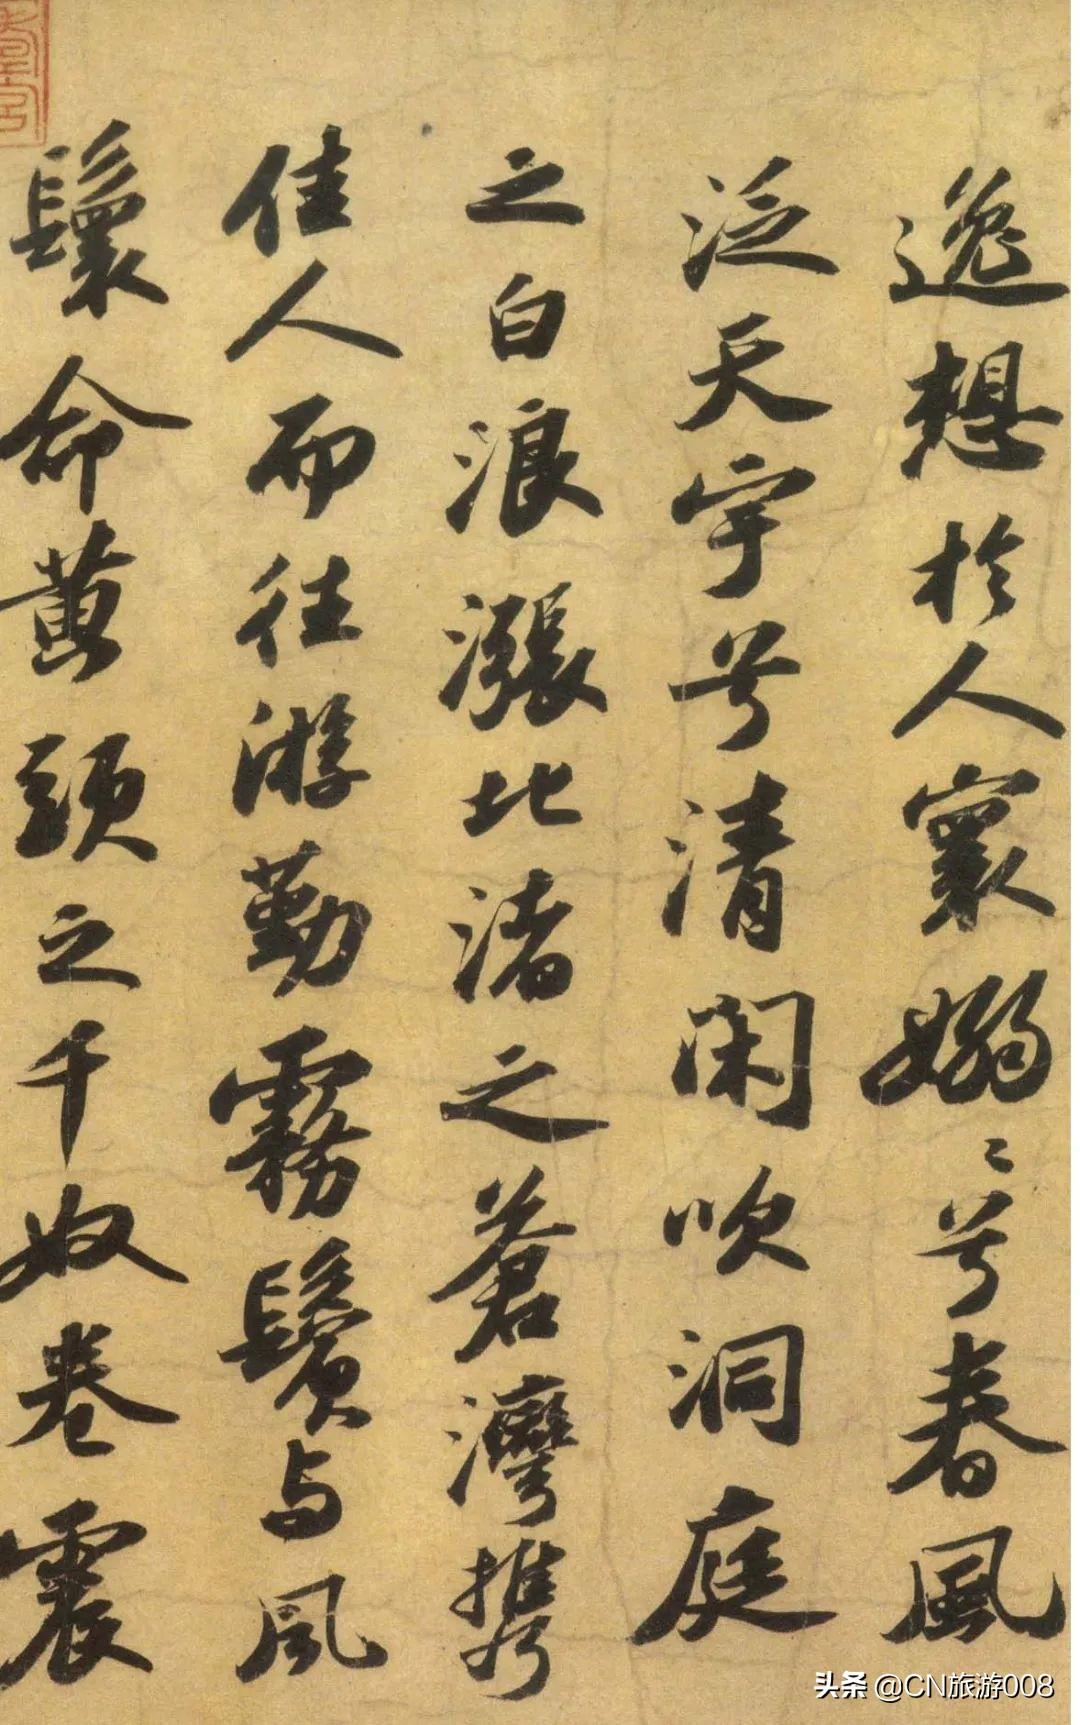 逸想於人寰嫋〻兮春風
泛天宇兮清閑吹洞庭
之白浪漲北渚之蒼灣攜
佳人而往游勤霧鬢與風
鬟命黃頭之千奴卷震
头条 @CN旅游008